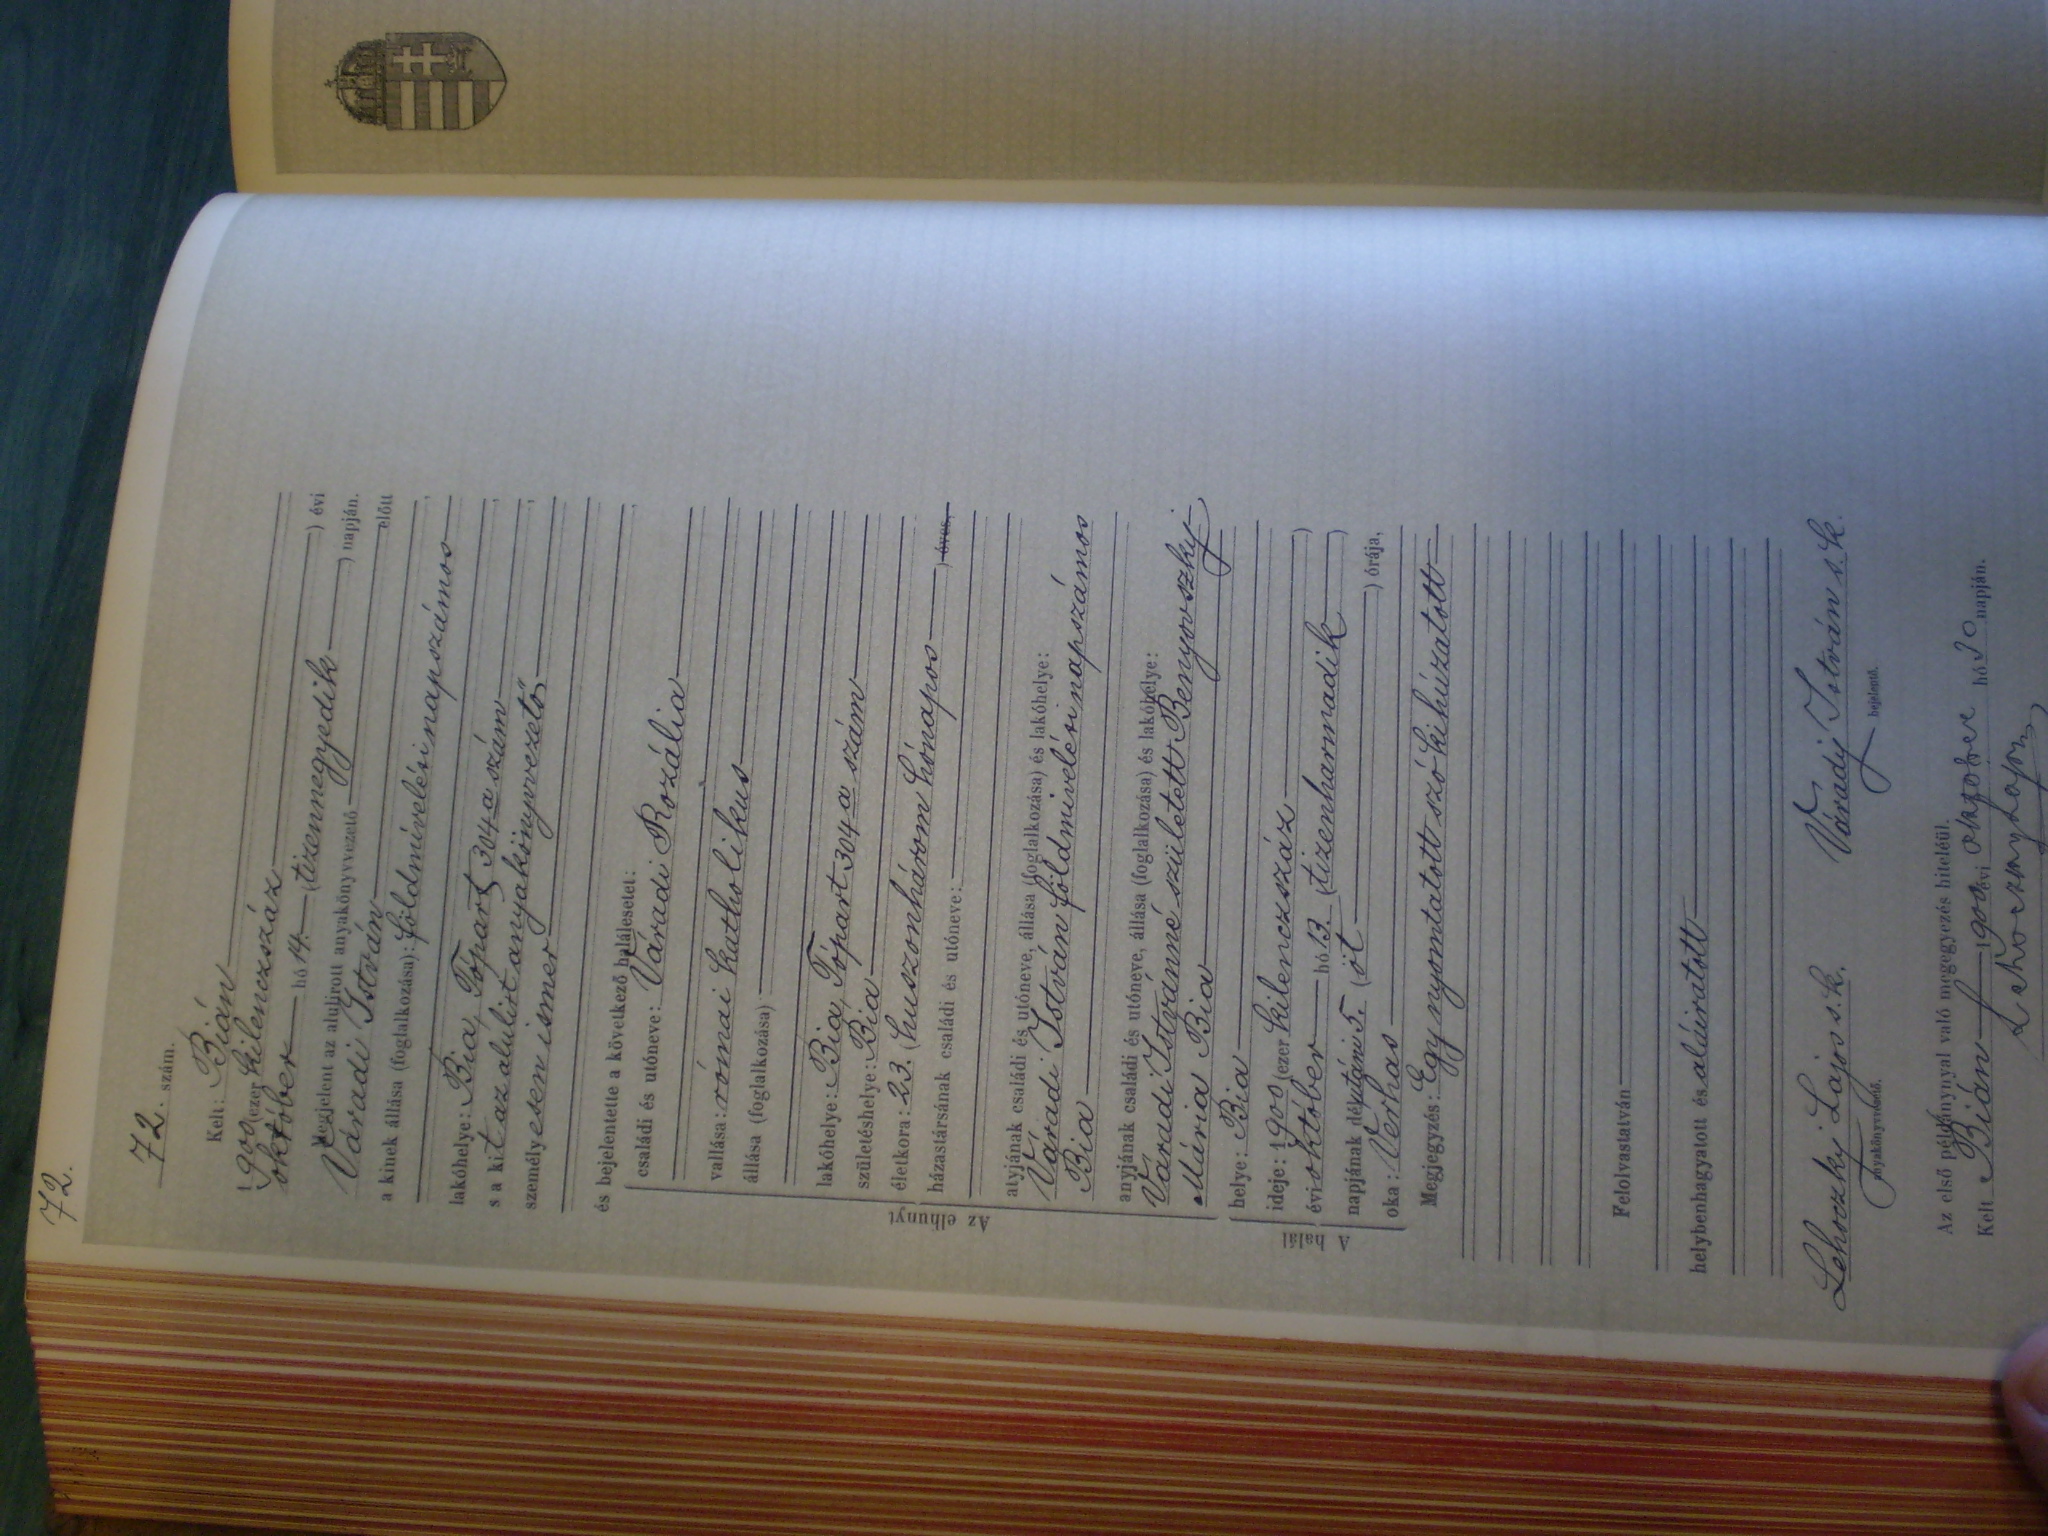 72.
72. szám.
Kelt: Bián
1900 (ezer kilenczszáz ) évi
október hó 14. (tizennegyedik ) napján.
Megjelent az alulirott anyakönyvvezető előtt
Váradi István,
a kinek állása (foglalkozása): földmivelési napszámos
lakóhelye: Bia, Tópart 304-a szám,
s a kit az alulirt anyakönyvvezető,
személyesen ismer
és bejelentette a következő halálesetet:
Az elhunyt
családi és utóneve: Váradi Rozália
vallása: római katholikus
állása (foglalkozása)
lakóhelye: Bia, Tópart 304-a szám
születéshelye: Bia
életkora: 23. (huszonhárom hónapos ) éves,
házastársának családi és utóneve:
atyjának családi és utóneve, állása (foglalkozása) és lakóhelye:
Váradi István földmivelési napszámos
Bia
anyjának családi és utóneve, állása (foglalkozása) és lakóhelye:
Váradi Istvánné született Benyovszky
Mária Bia
A halál
helye: Bia
ideje: 1900 (ezer kilenczszáz )
évi október hó 13. (tizenharmadik )
napjának délutáni 5. (öt ) órája,
oka: Vérhas
Megjegyzés: Egy nyomtatott szó kihúzatott
Felolvastatván
helybenhagyatott és aláiratott
Lehoczky Lajos s. k. Váradi István s. k.
anyakönyvvezető. bejelentő.
Az első példánnyal való megegyezés hiteléül.
Kelt Bián 1900 évi október hó 30 napján.
Lehoczky Lajos